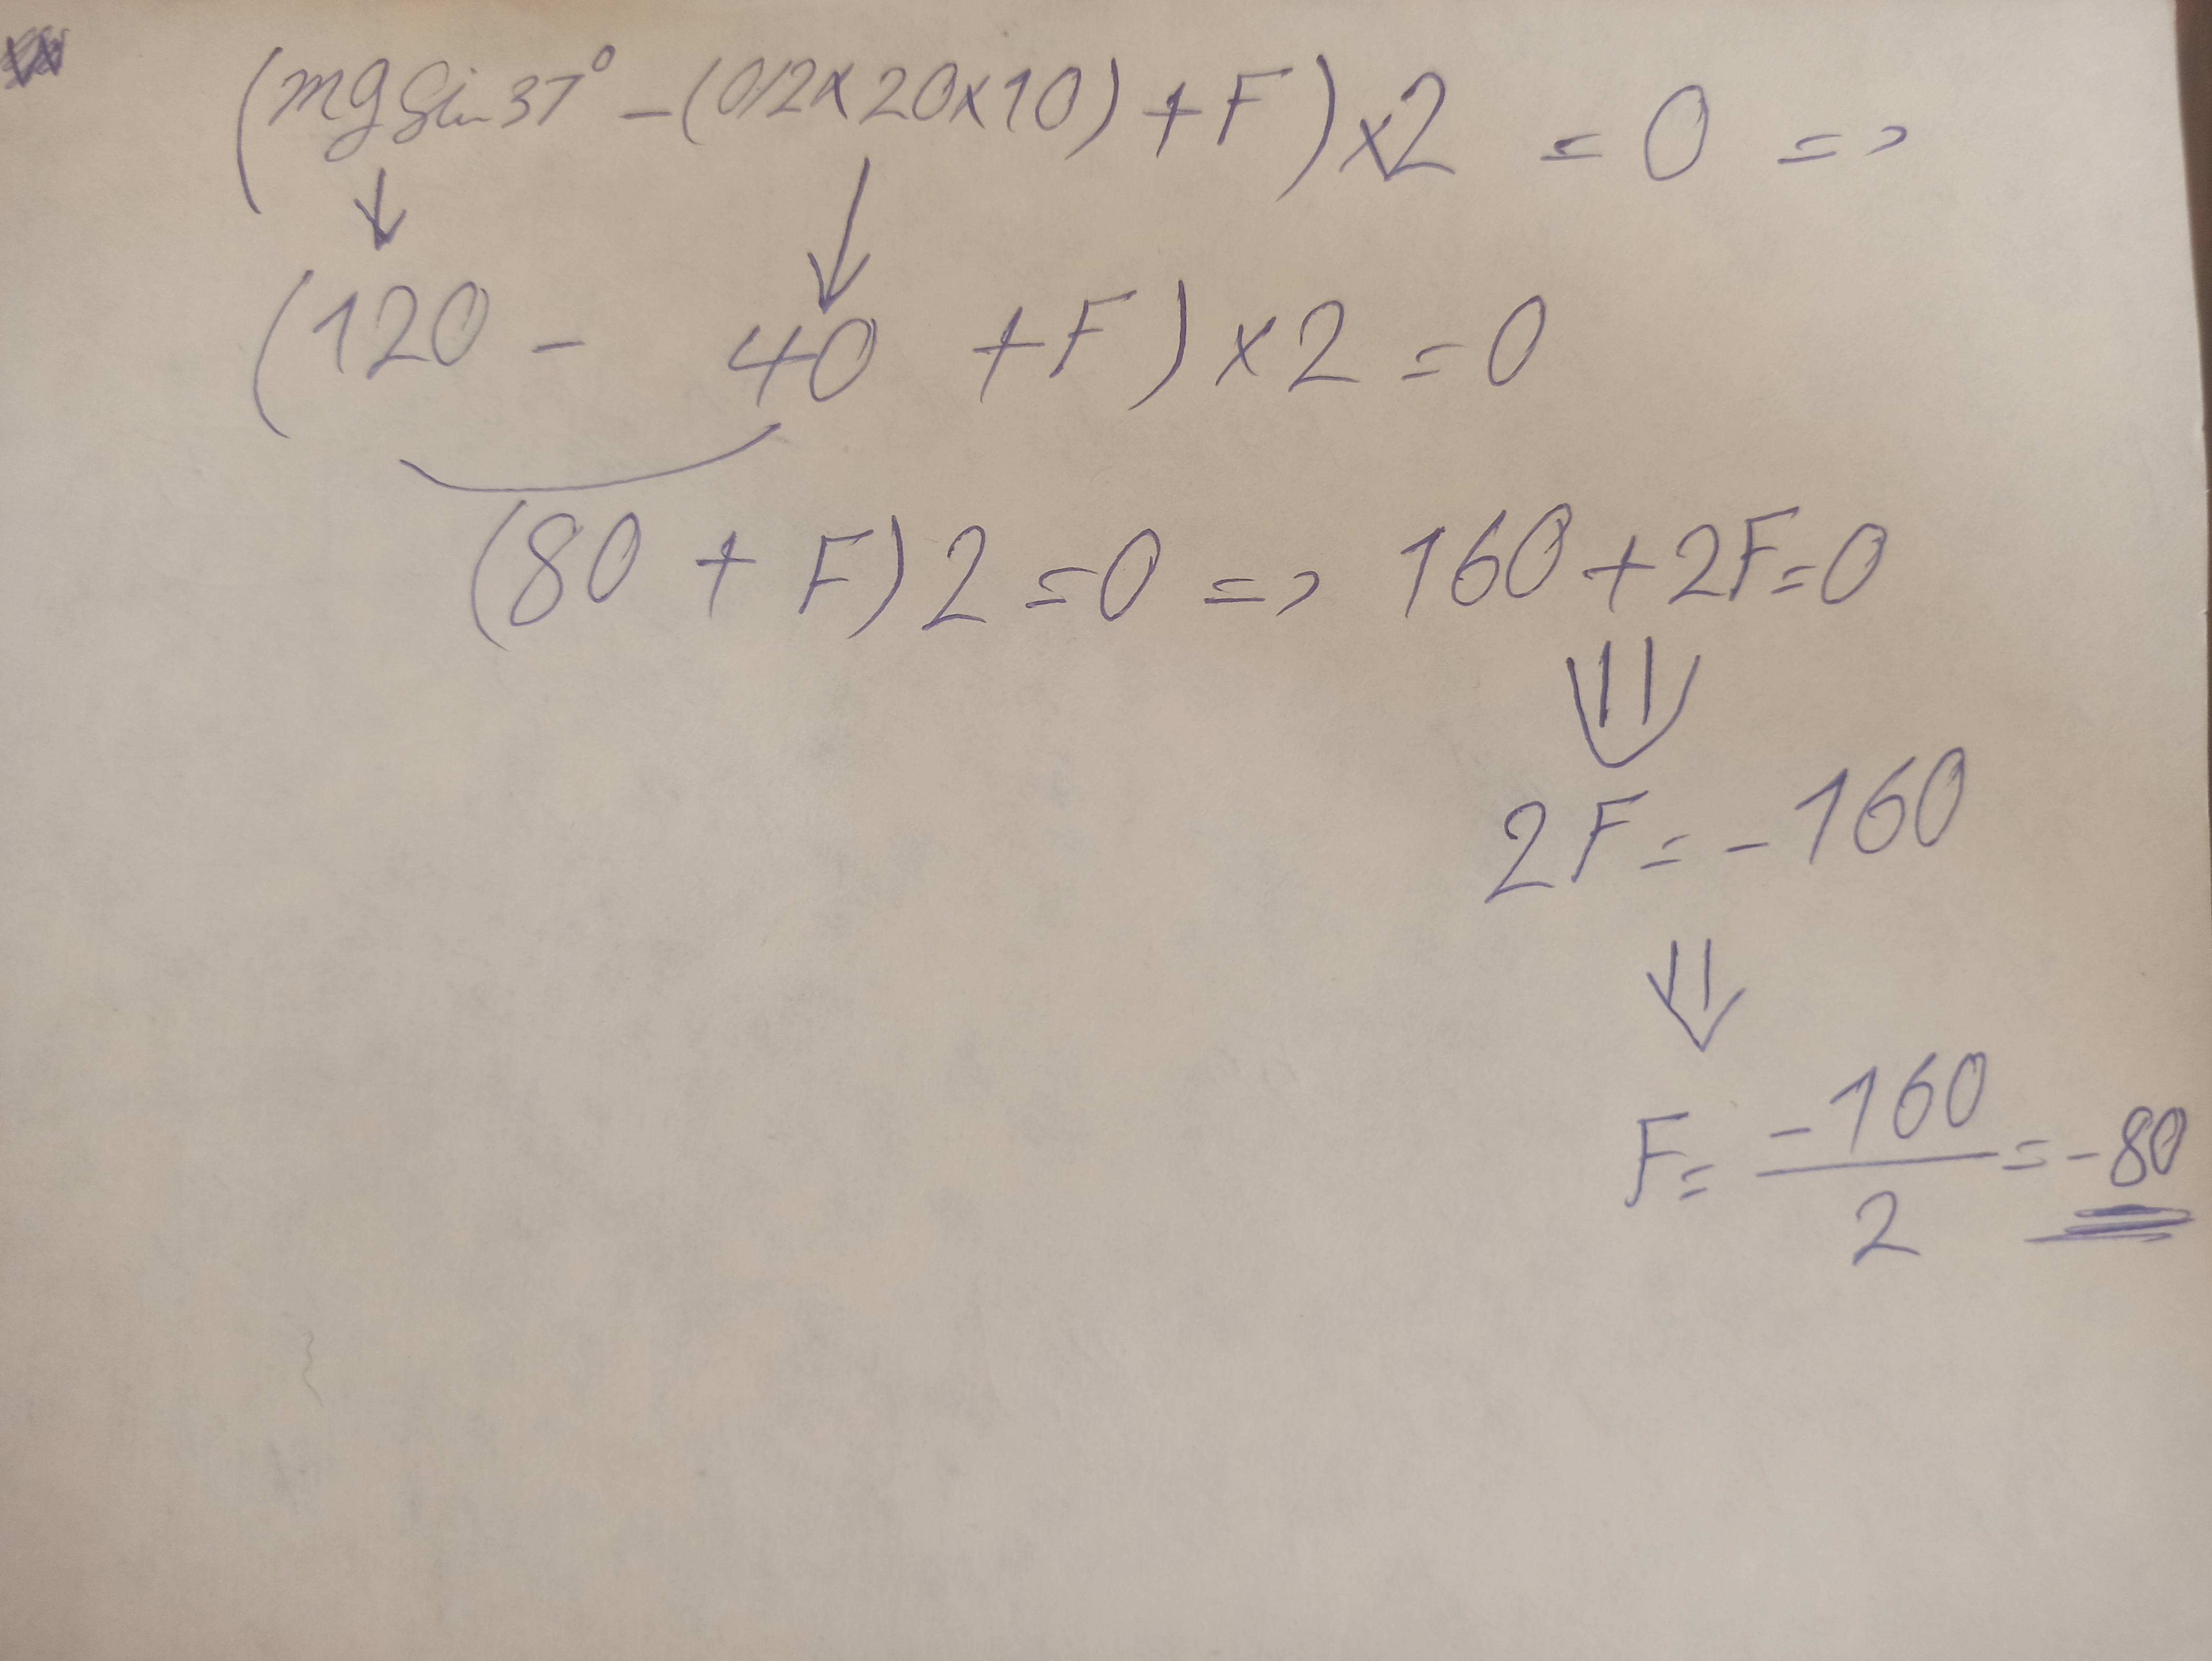 (mg Sin 37° - (0/2 × 20 × 10) + F) × 2 = 0 =>
↓ ↓
(120 - 40 + F) × 2 = 0
(80 + F) 2 = 0 => 160 + 2F = 0
⇓
2F = - 160
⇓
F = -160/2 = -80